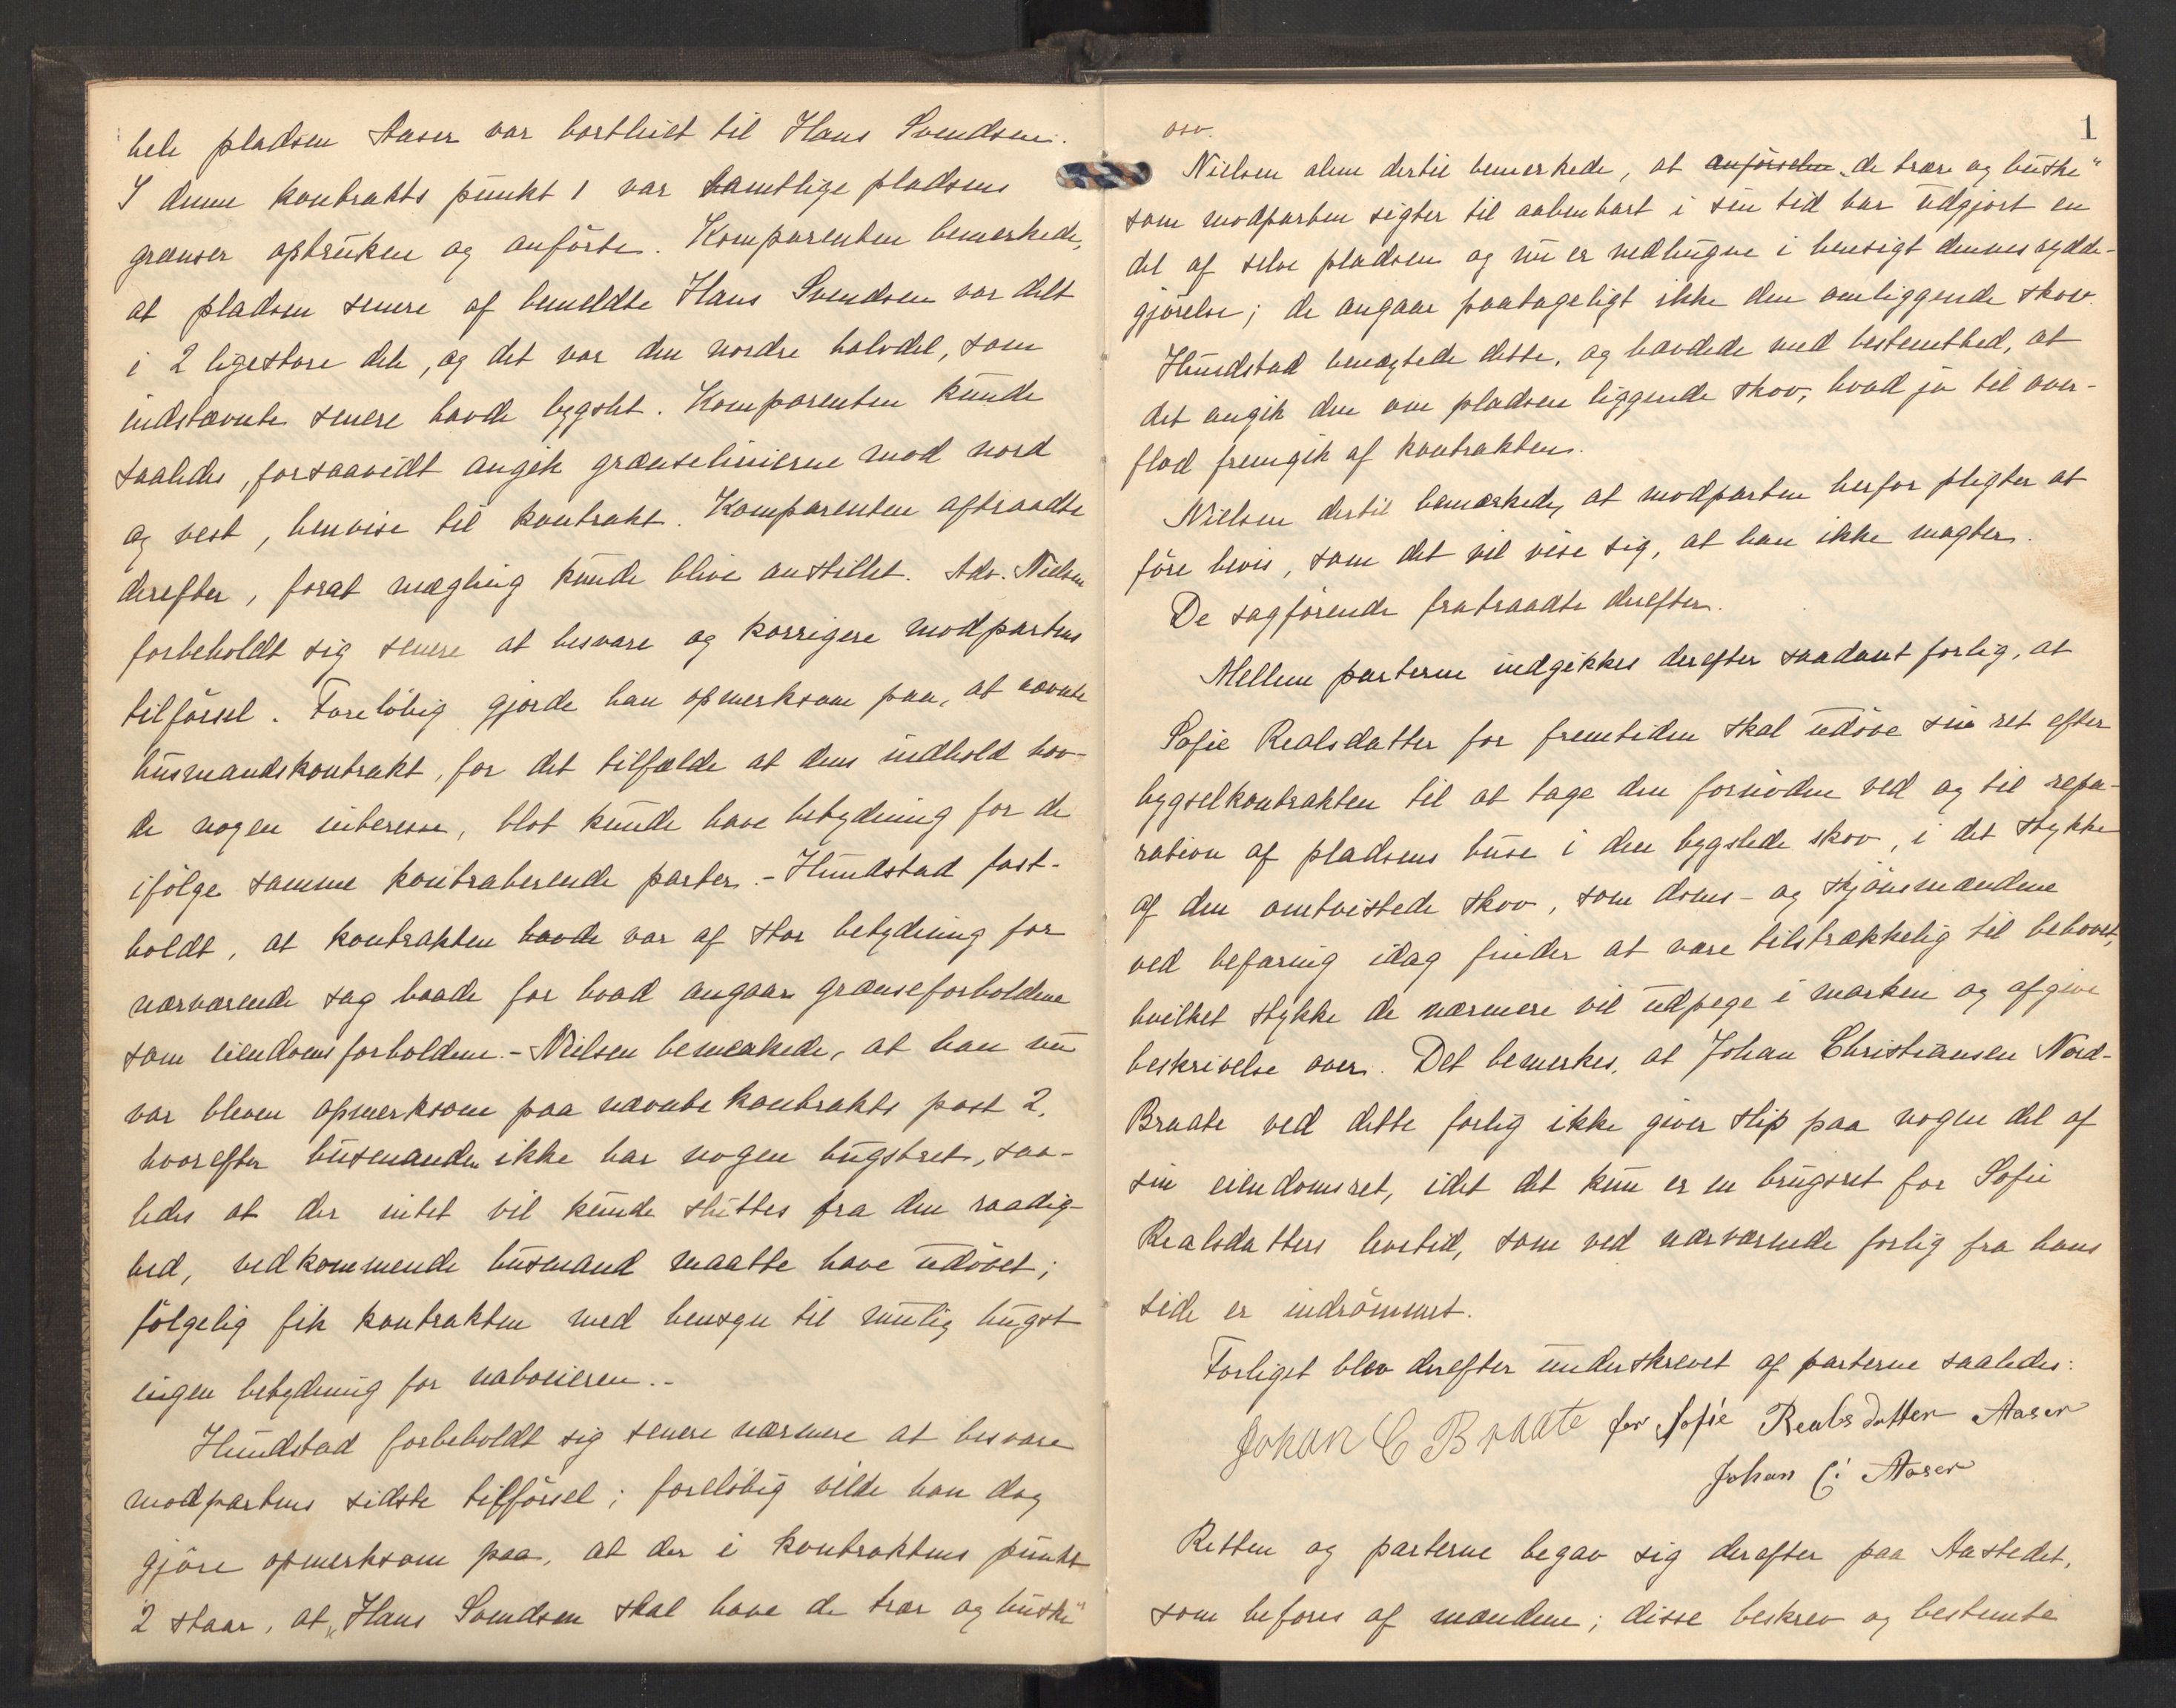 hele pladsen Aaser var bortleiet til Hans Svendsen.
I denne kontrakts punkt 1 var samtlige pladsens
grænser optrukne og anførte. Komparenten bemerkede,
at pladsen senere af bemeldte Hans Svendsen var delt
i 2 ligestore dele, og det var den nordre halvdel, som
indstævnte senere havde bygslet. Komparenten kunde
saaledes, forsaavidt angik grænselinierne mod nord
og vest, henvise til kontrakt. Komparenten aftraadte
derefter, forat mægling kunde blive anstillet. Adv. Nielsen
forbeholdt sig senere at besvare og korrigere modpartens
tilførsel. Foreløbig gjorde han opmerksom paa, at nævnte
husmandskontrakt, for det tilfælde at dens indhold hav-
de nogen interesse, blot kunde have betydning for de
ifølge samme kontraherende parter. - Hundstad fast-
holdt, at kontrakten havde var af stor betydning for
nærværende sag baade for hvad angaar grænseforholdene
som eiendomsforholdene. - Nielsen bemerkede, at han nu
var bleven opmerksom paa nævnte kontrakts post 2,
hvorefter husmanden ikke har nogen hugstret, saa-
ledes at der intet vil kunde sluttes fra den raadig-
hed, vedkommende husmand maatte have udøvet;
følgelig fik kontrakten med hensyn til mulig hugst
ingen betydning for naboeieren. -
Hundstad forbeholdt sig senere nærmere at besvare
modpartens sidste tilførsel; foreløbig vilde han dog
gjøre opmerksom paa, at der i kontraktens punkt
2 staar, at „Hans Svendsen skal have de trær og buske"
osv.
1
Nielsen alene dertil bemerkede, at anførselen „de trær og buske"
som modparten sigter til aabenbart i sin tid har udgjort en
del af selve pladsen og nu er nedhugne i hensigt dennes rydde-
gjørelse; de angaar paatageligt ikke den omliggende skov.
Hundstad benægtede dette, og hævdede med bestemthed, at
det angik den om pladsen liggende skov, hvad jo til over-
flod fremgik af kontrakten.
Nielsen dertil bemærkede, at modparten herfor pligter at
føre bevis, som det vil vise sig, at han ikke magter.
De sagførende fratraadte derefter.
Mellem parterne indgikkes derefter saadant forlig, at
Sofie Realsdatter for fremtiden skal udøve sin ret efter
bygselkontrakten til at tage den fornødne ved og til repa-
ration af pladsens huse i den bygslede skov, i det stykke
af den omtvistede skov, som doms- og skjønsmændene
ved befaring idag finder at være tilstrækkelig til behovet,
hvilket stykke de nærmere vil udpege i marken og afgive
beskrivelse over. Det bemerkes, at Johan Christiansen Nord-
Braate ved dette forlig ikke giver slip paa nogen del af
sin eiendomsret, idet det kun er en brugsret for Sofie
Realsdatters levetid, som ved nærværende forlig fra hans
side er indrømmet.
Forliget blev derefter underskrevet af parterne saaledes:
Johan C Braate for Sofie Realsdatter Aaser
Johan C. Aaser
Retten og parterne begav sig derefter paa Aastedet,
som befores af mændene; disse beskrev og bestemte